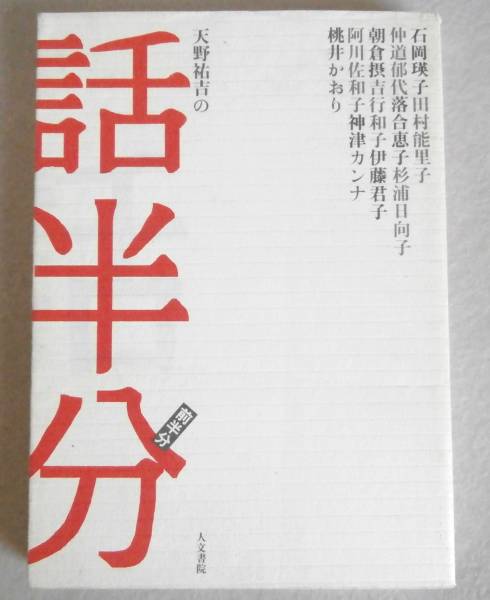 石岡瑛子田村能里子
仲道郁代落合恵子杉浦日向子
朝倉摂吉行和子伊藤君子
阿川佐和子神津カンナ
桃井かおり
天野祐吉の
話半分
前半分
人文書院